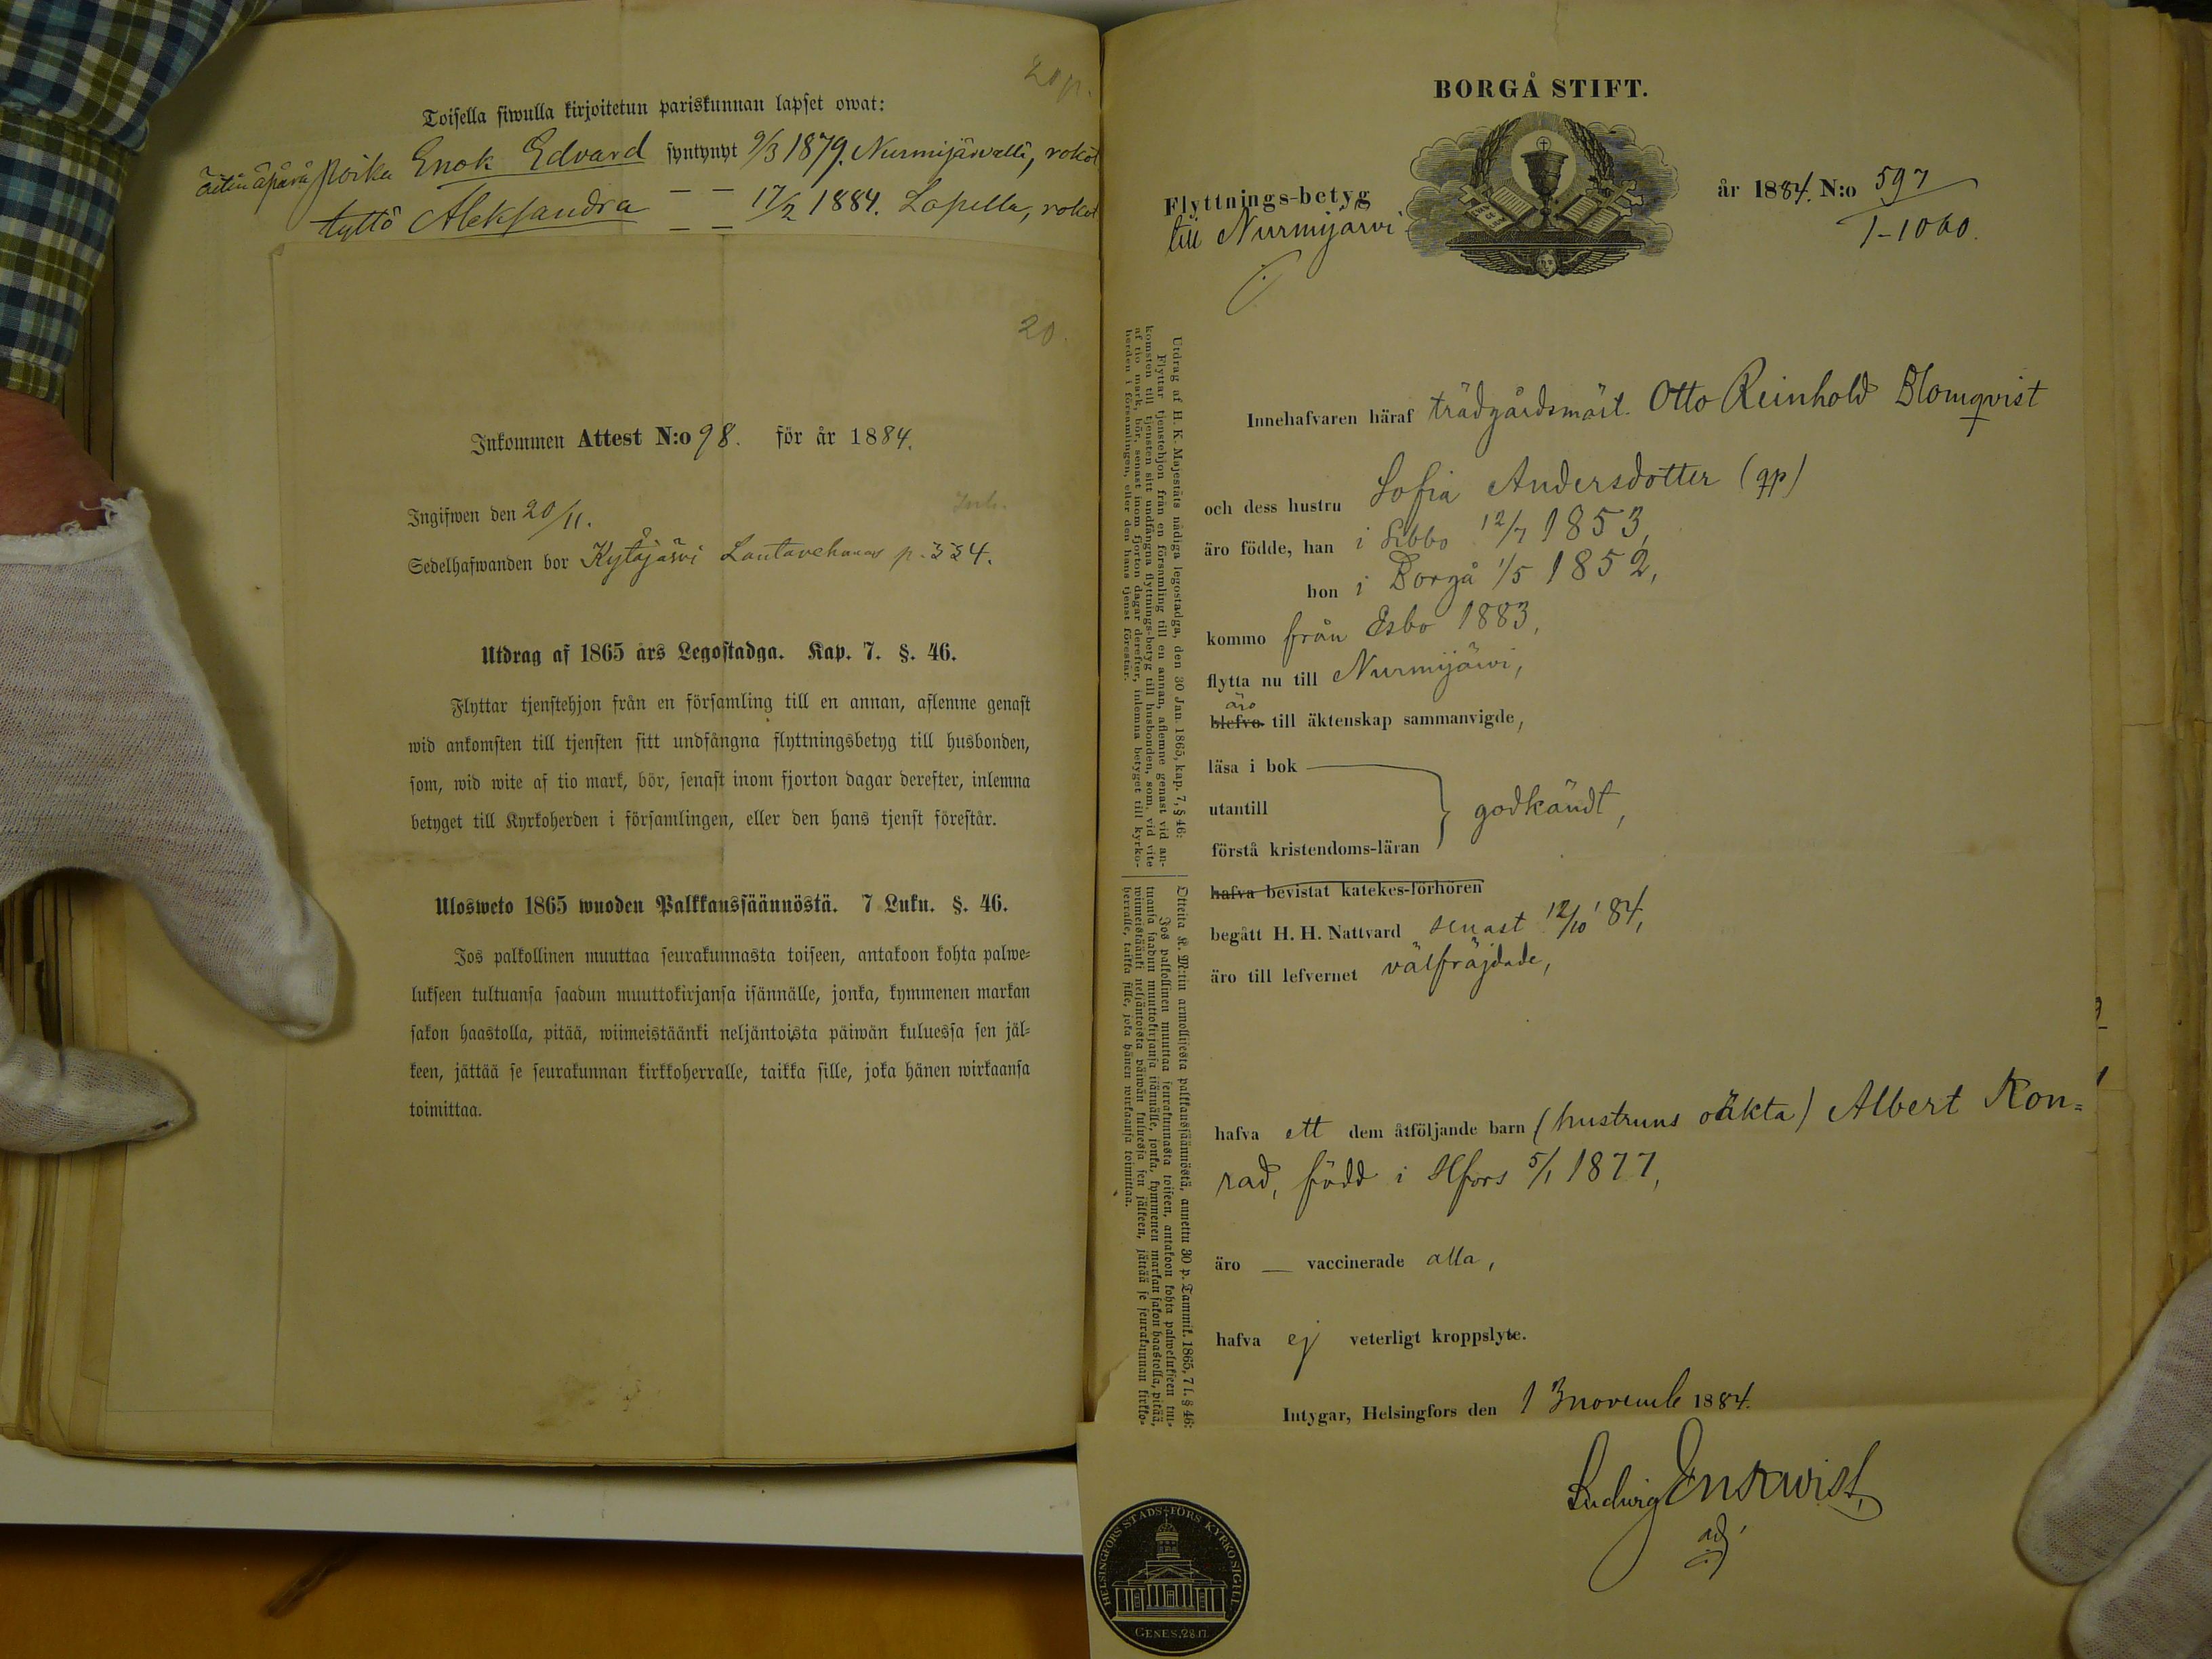 20 p.
Toisella siwulla kirjoitetun pariskunnan lapset owat:
äitin äpärä poika Enok Edvard syntynyt 9/3 1879. Nurmijärvellä, rokot
tyttö Aleksandra — — 17/2 1884. Lopella, rokot
— —
20.
Inkommen Attest N:o 98. för år 1884.
Inh.
Ingifwen den 20/11.
Sedelhafwanden bor Kytäjärvi Lautavehanas p. 334.
Utdrag af 1865 års Legostadga. Kap. 7. §. 46.
Flyttar tjenstehjon från en församling till en annan, aflemne genast
wid ankomsten till tjensten sitt undfångna flyttningsbetyg till husbonden,
som, wid wite af tio mark, bör, senast inom fjorton dagar derefter, inlemna
betyget till Kyrkoherden i församlingen, eller den hans tjenst förestår.
Ulosweto 1865 wuoden Palkkaussäännöstä. 7 Luku. §. 46.
Jos palkollinen muuttaa seurakunnasta toiseen, antakoon kohta palwe=
lukseen tultuansa saadun muuttokirjansa isännälle, jonka, kymmenen markan
sakon haastolla, pitää, wiimeistäänki neljäntoista päiwän kuluessa sen jäl=
keen, jättää se seurakunnan kirkkoherralle, taikka sille, joka hänen wirkaansa
toimittaa.
BORGÅ STIFT.
Flyttnings-betyg
till Nurmijärvi
år 1884. N:o 597
I-1060.
Utdrag af H. K. Majestäts nådiga legostadga, den 30 Jan. 1865, kap. 7, § 46:
Flyttar tjenstehjon från en församling till en annan, aflemne genast vid an-
komsten till tjensten sitt undfångna flyttnings-betyg till husbonden, som, vid vite
af tio mark, bör, senast inom fjorton dagar derefter, inlemna betyget till kyrko-
herden i församlingen, eller den hans tjenst förestår.
Otteita K. M:tin armollisesta palkkaussäännöstä, annettu 30 p. Tammik. 1865, 7 l. § 46:
Jos palkollinen muuttaa seurakunnasta toiseen, antakoon kohta palwelukseen tul-
tuansa saadun muuttokirjansa isännälle, jonka, kymmenen markan sakon haastolla, pitää,
wiimeistäänki neljäntoista päiwän kuluessa sen jälkeen, jättää se seurakunnan kirkko-
herralle, taikka sille, joka hänen wirkaansa toimittaa.
Innehafvaren häraf trädgårdsmäst. Otto Reinhold Blomqvist
och dess hustru Sofia Andersdotter (qp)
äro födde, han i Sibbo 12/7 1853,
hon i Borgå 1/5 1852,
kommo från Esbo 1883,
flytta nu till Nurmijärvi,
äro
blefvo till äktenskap sammanvigde,
läsa i bok
utantill godkändt,
förstå kristendoms-läran
hafva bevistat katekes-förhören
begått H. H. Nattvard senast 12/10 '84,
äro till lefvernet välfräjdade,
hafva ett dem åtföljande barn (hustruns oäkta) Albert Kon=
rad, född i Hfors 5/1 1877,
äro — vaccinerade alla,
hafva ej veterligt kroppslyte.
Intygar, Helsingfors den 13 novemb 1884.
Ludvig Enqvist,
adj
HELSINGFORS STADS-FÖRS KYRKO SIGILL
GENES. 28.17.